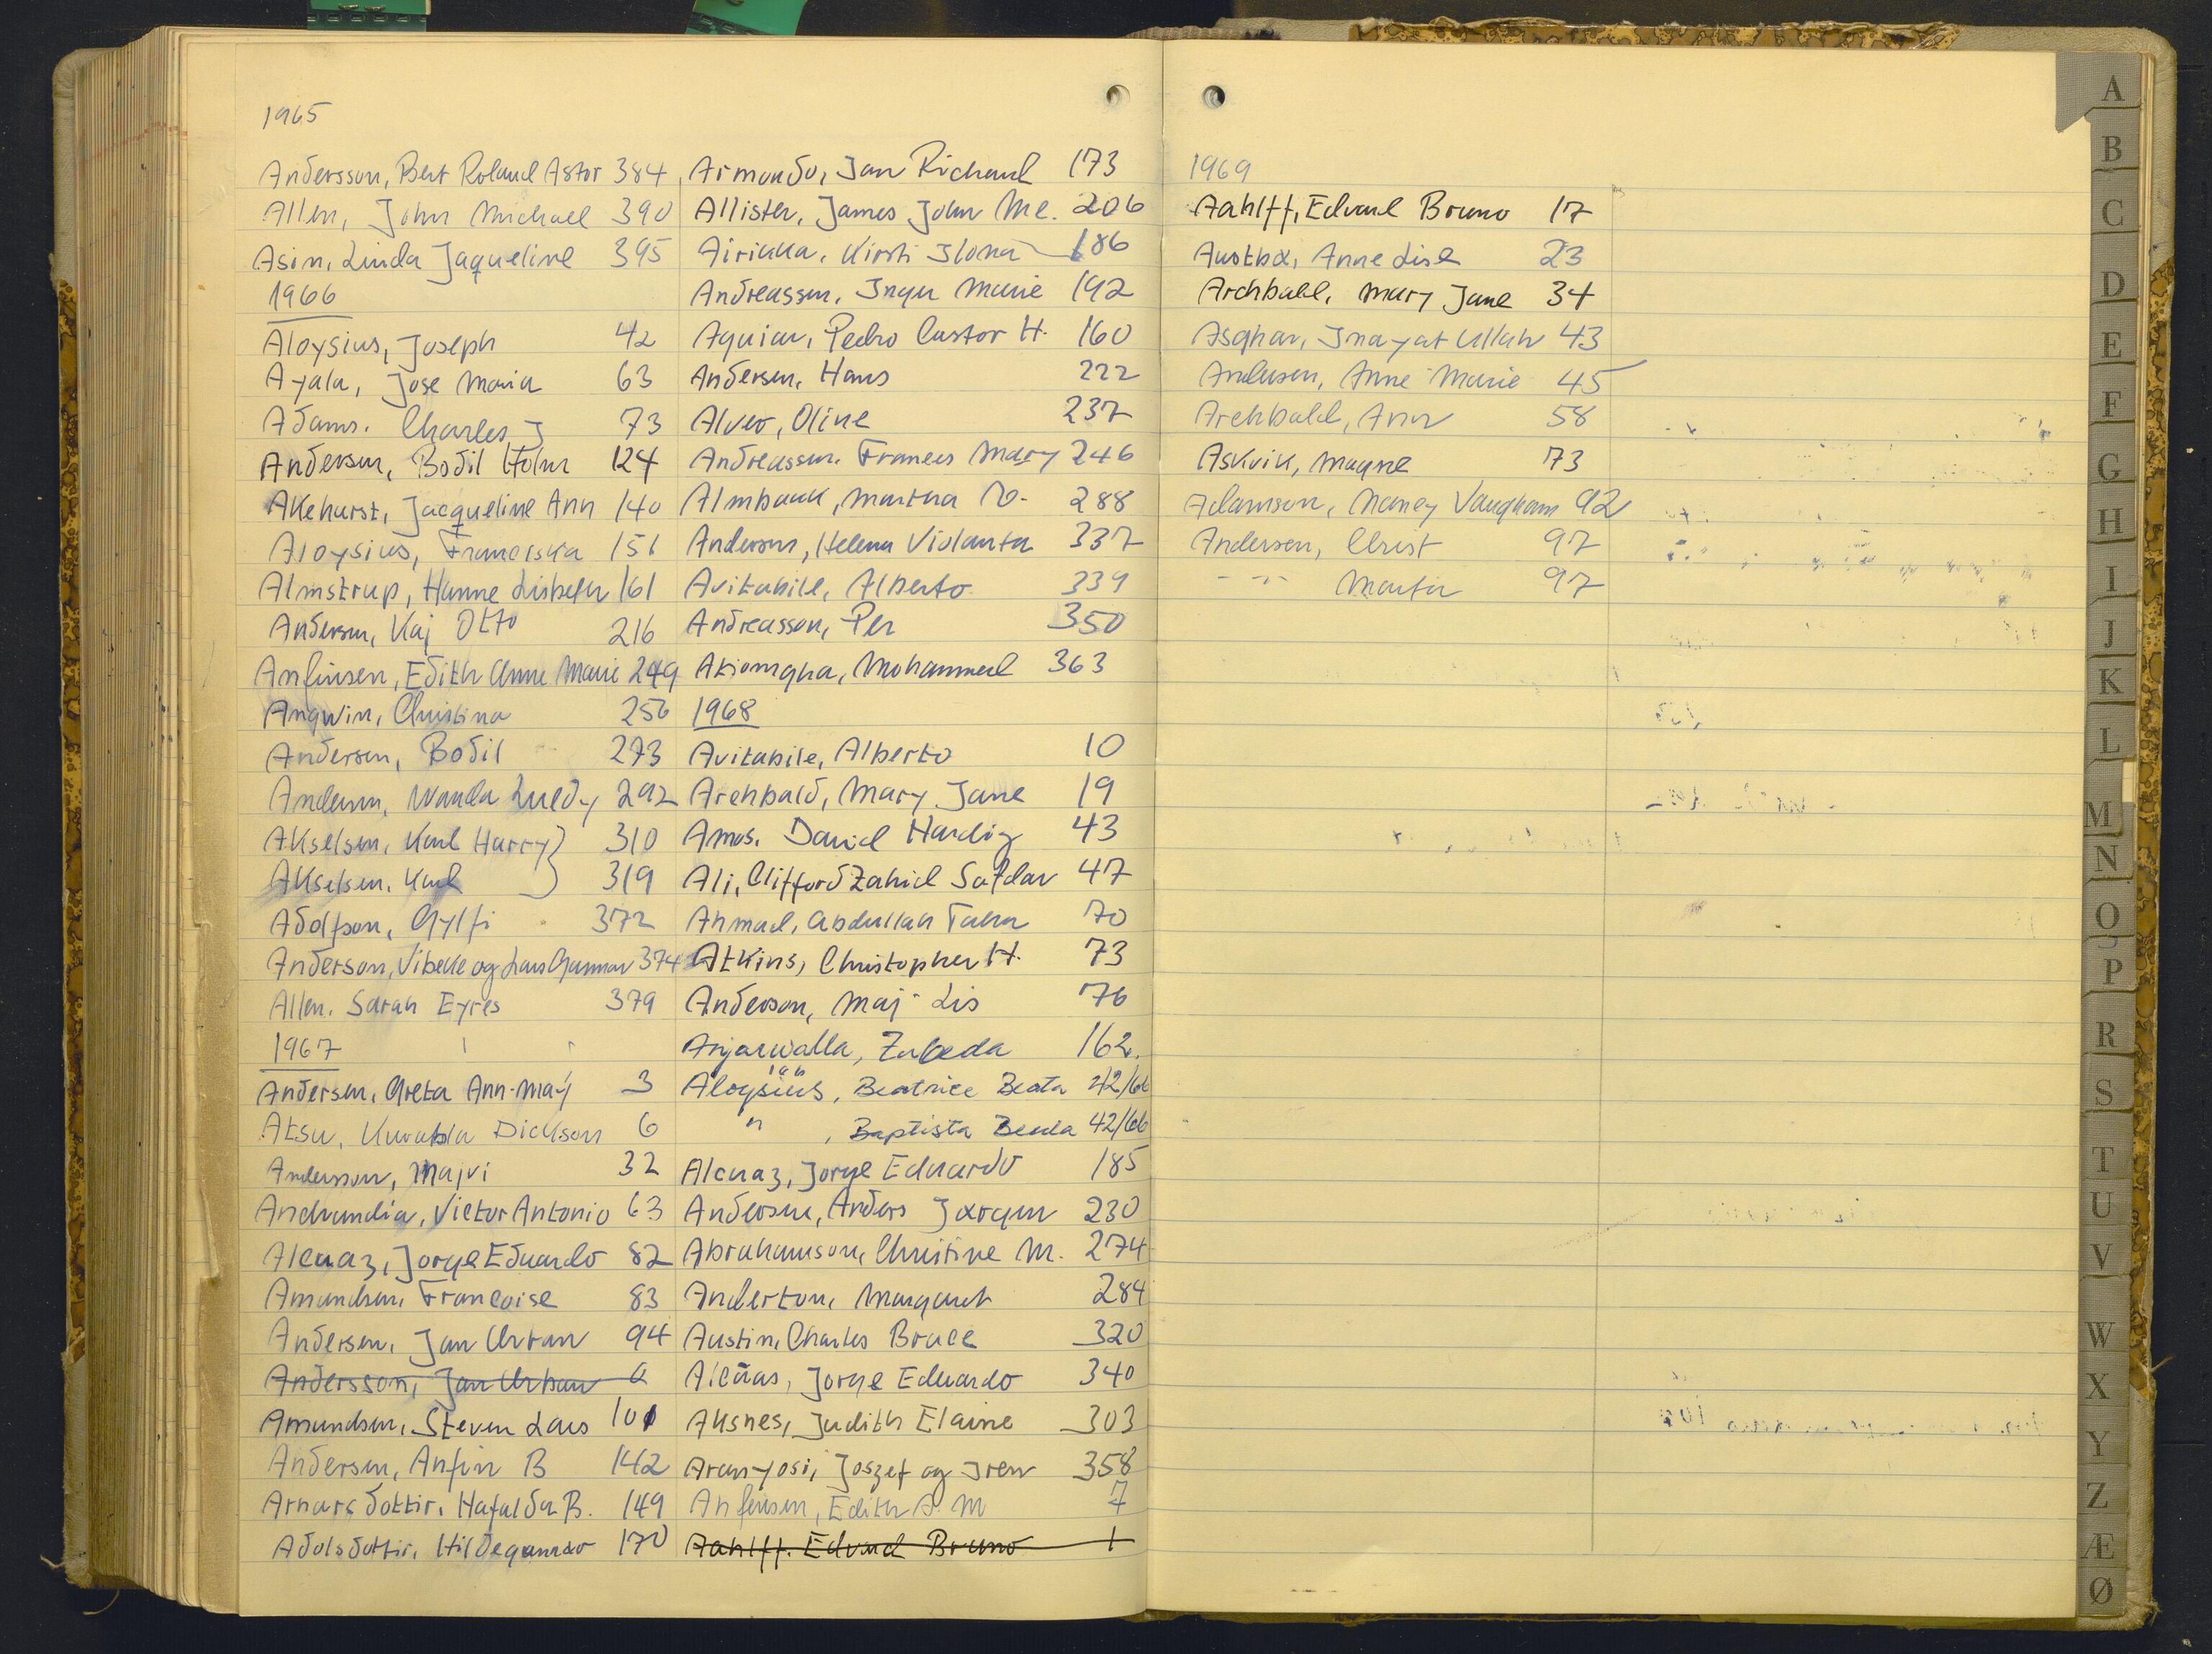 1965
Andersson, Bert Roland Astor 384
Allen, John Michael 390
Asin, Linda Jaqueline 395
1966
Aloysius, Joseph 42
Ayala, Jose Maria 63
Adams. Charles J 73
Andersen, Bodil Holm 124
Akehurst, Jacqueline Ann 140
Aloysius, Franciska 151
Almstrup, Hanne Lisbeth 161
Andersen, Kaj Otto 216
Anfinsen, Edith Anne Marie 249
Angwin, Christina 256
Andersen, Bodil 273
Andersen, Wanda 292
Akselsen, Karl Harry 310
Akselsen, Karl 319
Adolfson, Gylfi 372
Anderson, Vibeke og Lars Gunnar 374
Allen. Sarah Eyres 379
1967
Andersen, Greta Ann-May 3
Atsu, Dickson 6
Andersson, Majvi 32
Victor Antonio 63
Alcuaz, Jorge Eduardo 82
Amundsen, Francoise 83
Andersen, Jan Urban 94
Andersson, Jan Urban
Amundsen, Steven Lars 101
Andersen, Anfin B 142
Arnarsdottir, Hafaldur B. 149
Adolsdottir, Hildegunnur 170
Armando, Jan Richard 173
Allister, James John Mc. 206
Airikka, Kirsti Ilona 186
Andreassen, Inger Marie 192
Aguiar, Pedro Castor H. 160
Andersen, Hans 222
Alver, Oline 237
Andreassen. Frances Mary 246
Almbakk, Martha O. 288
Anderson, Helena Violanta 337
Avitabile, Alberto 339
Andreasson, Per 350
Mohammed 363
1968
Avitabile, Alberto 10
Archbald, Mary Jane 19
Amos. David Harding 43
Ali, Clifford Zahid Safdar 47
Ahmad, Abdullah Taher 70
Atkins, Christopher H. 73
Anderson, Maj-Lis 76
Anjarwalla, Zubeda 162.
Aloysius, Beatrice Beata 42/66
" , Baptista Benta 42/66
Alcuaz, Jorge Eduardo 185
Andersen, Anders Jørgen 230
Abrahamson, Christine M. 274
Anderton, Margaret 284
Austin, Charles Bruce 320
Jorge Eduardo 340
Aksnes, Judith Elaine 303
Aranyosi, Joszef og Iren 358
Anfinsen, Edith A. M 7
Aahlff. Edvard Bruno 1
1969
Aahlff, Edvard Bruno 17
Austbø, Anne Lise 23
Archbald, Mary Jane 34
Asghar, Inayat Ullah 43
Andersen, Anne Marie 45
Archbald, Ann 58
Askvik, Magne 73
Adamson, Nancy Vaugham 92
Andersen, Christ 97
-"- Marta 97
A
B
C
D
E
F
G
H
I
J
K
L
M
N
O
P
R
S
T
U
V
W
X
Y
Z
Æ
Ø